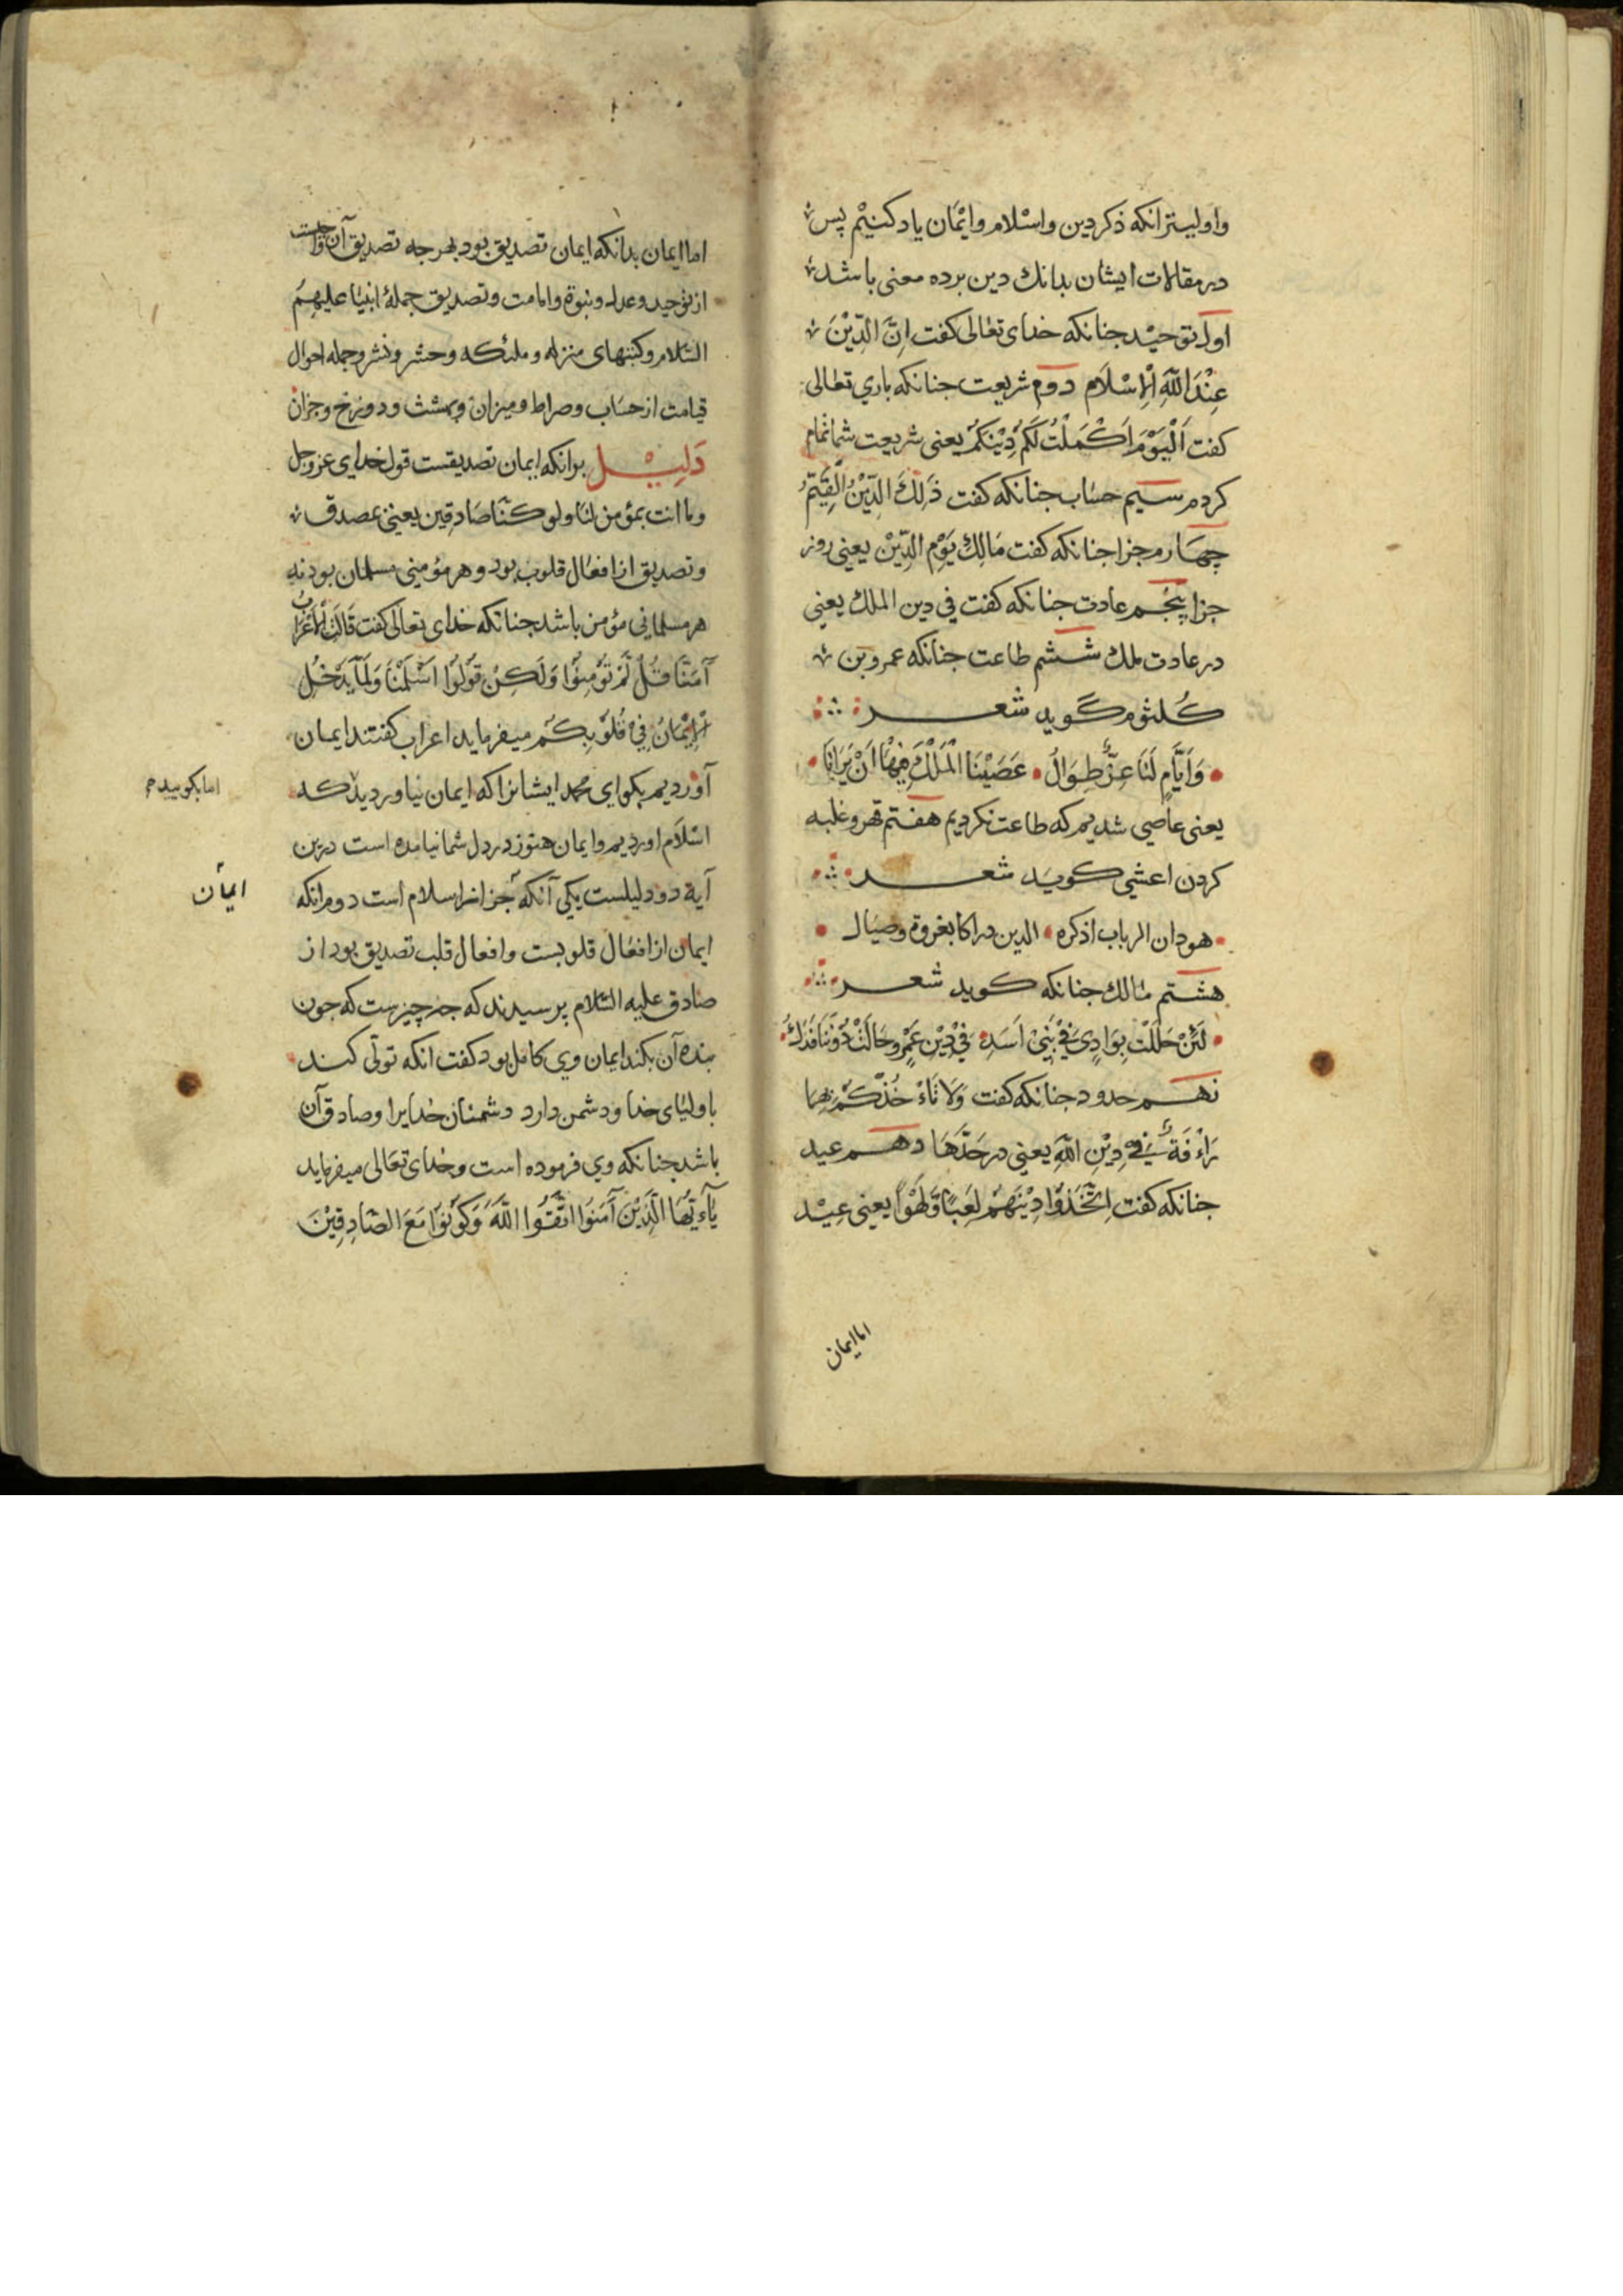 واولیتر انکه ذکر دین واسْلام وایْمَان یاد کنیْم پس
در مقالات ایشان بدانك دین برده معنی باشد
اول توحیْد جنانکه خدای تعٰالی کفت اِنَّ الدِّیْنَ
عِنْدَ اللّٰهِ اْلاِسْلَام دوم شریعت جنانکه باري تعٰالی
کفت اَلْیَوْمَ اَکْمَلْتُ لَکُمْ دِیْنَکُمْ یعنی شریعت شما تمام
کردم سیم حسٰاب جنانکه کفت ذٰلِكَ الدِّیْنُ الْقَیِّمُ
چهَارم جزا جنانکه کفت مَالِكِ یَوْمِ الدِّیْن یعنی روز
جزا پنْجُم عادت جنانکه کفت في دین الملك یعنی
در عادت ملك ششم طاعت جنانکه عمرو بن
کُلثوم گوید شعر
وَاَیَّامٍ لَنَا عِزٌّ طِوَالُ عَصَیْنَا الْمَلْكَ فِیْهَا اَنْ یَرَانَا
یعنی عاصی شدیم که طاعت نکردیم هفتم قهر وغلبه
کردن اعشی کویَد شعر
هودان الرباب اذکره الدین دراکا بغزوة وصیَال
هشتم مٰالك جنانکه کوید شعر
لَئِنْ حَلَلْتَ بِوَادِیٍ فِیْ بَنِیْ اَسَدٍ فِيْ دِیْنِ عَمْرٍو حَالَتْ دُوْنَنَا فَدَكُ
نهم حدود جنانکه کفت وَلَا تَاْءْخُذْکُمْ بِهِمَا
رَاْءْفَةٌ فِيْ دِیْنِ اللّٰهِ یعنی در حَدّهَا دهم عید
جنانکه کفت اِتَّخَذُوْا دِیْنَهُمْ لَعِبًا وَّلَهْوًا یعنی عِیْد
اما ایمان
اما ایمان بدانکه ایمان تصدیق بود بهرجه تصدیق آن واجبست
از توحید وعدل ونبوة وامامت وتصدیق جملۀ انبیٰا علیهمُ
السّلام وکتبهای منزله وملئکه وحشر ونشر وجمله احوال
قیامت از حسَاب وصراط ومیزان وبهشت ودوزخ وجزان
دَلِیْل برانکه ایمان تصدیقست قول خدای عزوجل
وما انت بمؤمن لنا ولو کنّا صَادقِین یعنی بمصدق
وتصدیق از افعٰال قلوب بود وهر مؤمنی مسلمان بود نه
هر مسلمانی مؤمن باشد جنانکه خدای تعالٰی کفت قَالَتِ اْلاَعْرَابُ
آمَنَّا قُلْ لَّمْ تُوْمِنُوْا وَلٰکِنْ قُوْلُوْا اَسْلَمْنَا وَلَمَّا یَدْخُلِ
اْلاِیْمَانُ فِيْ قُلُوْبِکُمْ میفرماید اعراب کفتند ایمان
آوردیم بکو ای محمد ایشانرا که ایمان نیاوردید که
اما بکوییدم
اسْلَام اوردیم وایمان هنوز در دل شما نیامده است درین
آیة دو دلیلست یکی آنکه جز از اسلام است دوم انکه
ایمان
ایمان از افعٰال قلوبست وافعال قلب تصدیق بود از
صٰادق علیه السّلام پرسیدند که جه چیزست که جون
بنده آن بکند ایمان وي کامل بود کفت انکه تولّی کند
با ولیٰای خدا ودشمن دارد دشمنان خدایرا وصادق آن
باشد جنانکه وي فرموده است وخدای تعَالی میفرماید
یَآءَیُّهَا الَّذِیْنَ آمَنُوْا اتَّقُوا اللّٰهَ وَکُوْنُوْا مَعَ الصَّادِقِیْنَ